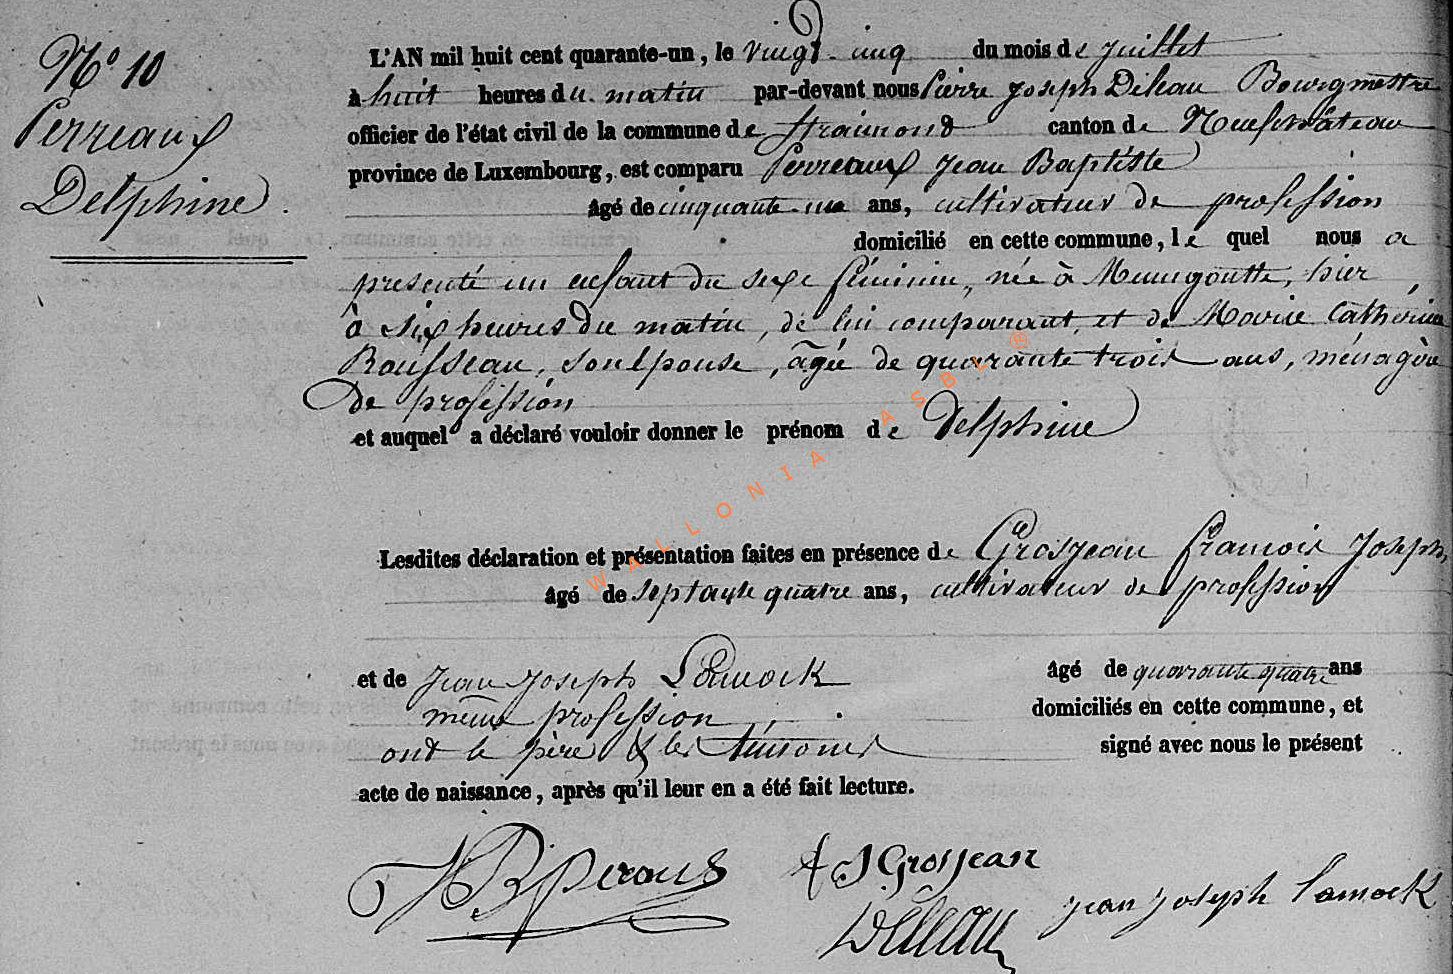 N.° 10
Perreaux
Delphine.
L'AN mil huit cent quarante-un, le vingt-cinq du mois de juillet
à huit heures du matin par-devant nous Pierre Joseph Déleau Bourgmestre
officier de l'état civil de la commune de Straimond canton de Neufchâteau
province de Luxembourg, est comparu Perreaux Jean Baptiste
âgé de cinquante-un ans, cultivateur de profession
domicilié en cette commune, le quel nous a
presenté un enfant du sexe féminin, née à Menugoutte, hier,
à six heures du matin, de lui comparant, et de Marie Catherine
Rousseau, son épouse, âgée de quarante trois ans, ménagère
de profession
et auquel a déclaré vouloir donner le prénom de Delphine
Lesdites déclaration et présentation faites en présence de Grosjean François Joseph,
âgé de septante quatre ans, cultivateur de profession
et de Jean Joseph Lamock âgé de quarante quatre ans
même profession, domiciliés en cette commune, et
ont le père & les témoins signé avec nous le présent
acte de naissance, après qu'il leur en a été fait lecture.
JB peraus f J Grosjean
Déleau jean joseph Lamock
WALLONIA ASBL ®